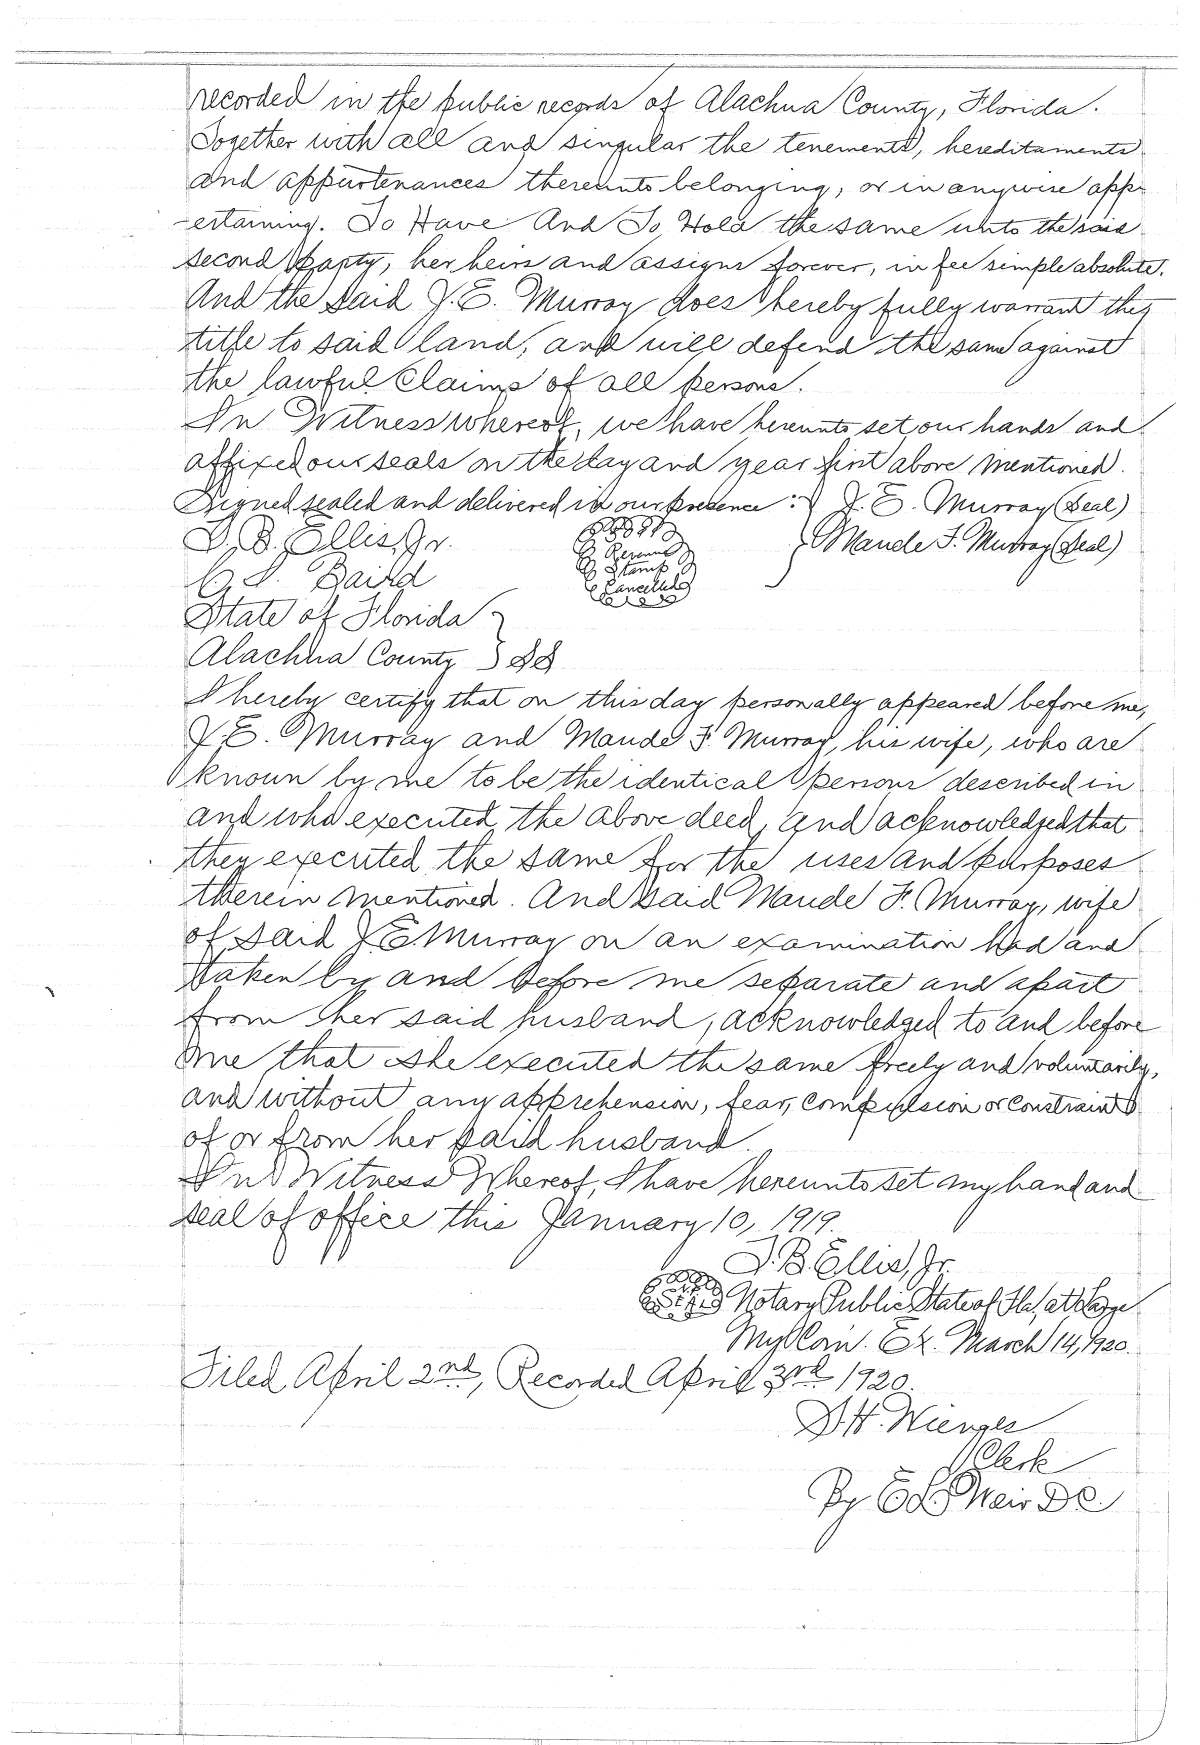 recorded in the public records of Alachua County, Florida.
Together with all and singular the tenements, hereditaments
and appurtenances thereunto belonging, or in anywise app-
-ertaining. To Have And To Hold the same unto the said
second party, her heirs and assigns forever, in fee simple absolute.
And the said J. E. Murray does hereby fully warrant the
title to said land, and will defend the same against
the lawful claims of all persons.
In Witness whereof, we have hereunto set our hands and
affixed our seals on the day and year first above mentioned.
Signed sealed and delivered in our presence : } J. E. Murray (Seal)
T. B. Ellis, Jr. } Maude F. Murray (Seal)
Baird
Revenue
Stamp
Cancelled
State of Florida }
Alachua County } SS
I hereby certify that on this day personally appeared before me,
J. E. Murray and Maude F. Murray, his wife, who are
known by me to be the identical persons described in
and who executed the above deed, and acknowledged that
they executed the same for the uses and purposes
therein mentioned. And said Maude F. Murray, wife
of said J. E. Murray on an examination had and
taken by and before me separate and apart
from her said husband, acknowledged to and before
me that she executed the same freely and voluntarily,
and without any apprehension, fear, compulsion or constraint
of or from her said husband.
In Witness Whereof, I have hereunto set my hand and
seal of office this January 10, 1919.
T. B. Ellis, Jr.
N.P.
SEAL
Notary Public State of Fla, at Large
My Com. Ex. March 14, 1920.
Filed April 2nd, Recorded April 3rd 1920.
S. H. Wienges
Clerk
By E L Weir D C.